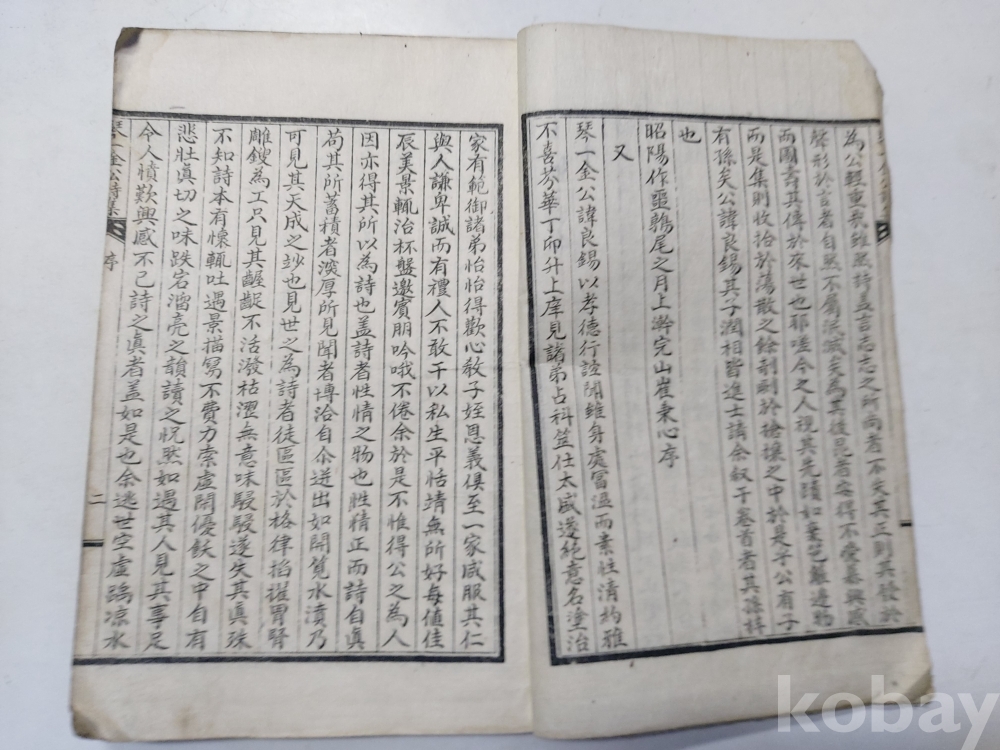 為公輕重矣雖然詩盖言志志之所尚者不失其正則其發於
聲形於言者自然不屬泯滅矣為其後昆者安得不愛慕興感
而圖壽其傳於來世也耶嗟今之人視其先蹟如弁髦雜邊物
而是集則收拾於蕩散之餘剞劂於搶攘之中於是乎公有子
有孫矣公諱良錫其子潤相皆進士請余叙于卷首者其孫
也
昭陽作噩鶉尾之月上澣完山崔秉心序
又
琴一金公諱良錫以孝德行誼聞維身處富溫而素性清約雅
不喜芬華丁卯升上庠見諸弟占科筮仕太盛遂純意名塗治
家有範御諸弟怡怡得歡心敎子姪恩義俱至一家咸服其仁
與人謙卑誠而有禮人不敢干以私生平恬靖無所好每值佳
辰美景輒治杯盤邀賓朋吟哦不倦余於是不惟得公之為人
因亦得其所以為詩也盖詩者性情之物也性情正而詩自眞
苟其所蓄積者深厚所見聞者博洽自尒迸出如開筧水濆乃
可見其天成之玅也見世之為詩者徒區區於格律掐擢胃腎
雕鎪為工只見其齷齪不活潑枯澀無意味駸駸遂失其眞殊
不知詩本有懷輒吐遇景描寫不費力索虛閒優飫之中自有
悲壯眞切之味跌宕瀏亮之韻讀之怳然如遇其人見其事足
令人憤歎興感不已詩之眞者盖如是也余逃世空虛踽凉水
琴一金公詩集
序
二
kobay